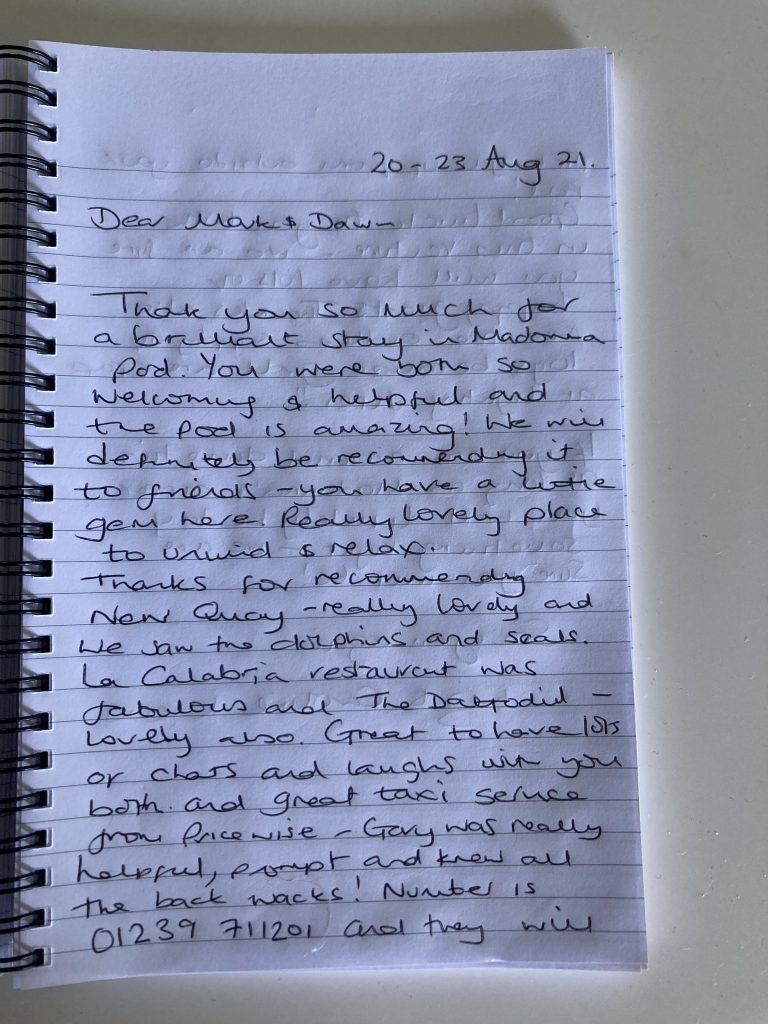 20 - 23 Aug 21.
Dear Mark & Dawn
Thak you so much for
a brilliant stay in Madonna
Pod. You were both so
welcoming & helpful and
the pod is amazing! We will
definitely be recommending it
to friends - you have a little
gem here. Really lovely place
to unwind & relax.
Thanks for recommending
New Quay - really lovely and
we saw the dolphins and seals.
La Calabria restaurant was
fabulous and The Daffodil -
lovely also. Great to have lots
of chats and laughs with you
both. and great taxi service
from Pricewise - Gary was really
helpful, prompt and knew all
the back wacks! Number is
01239 711201 and they will